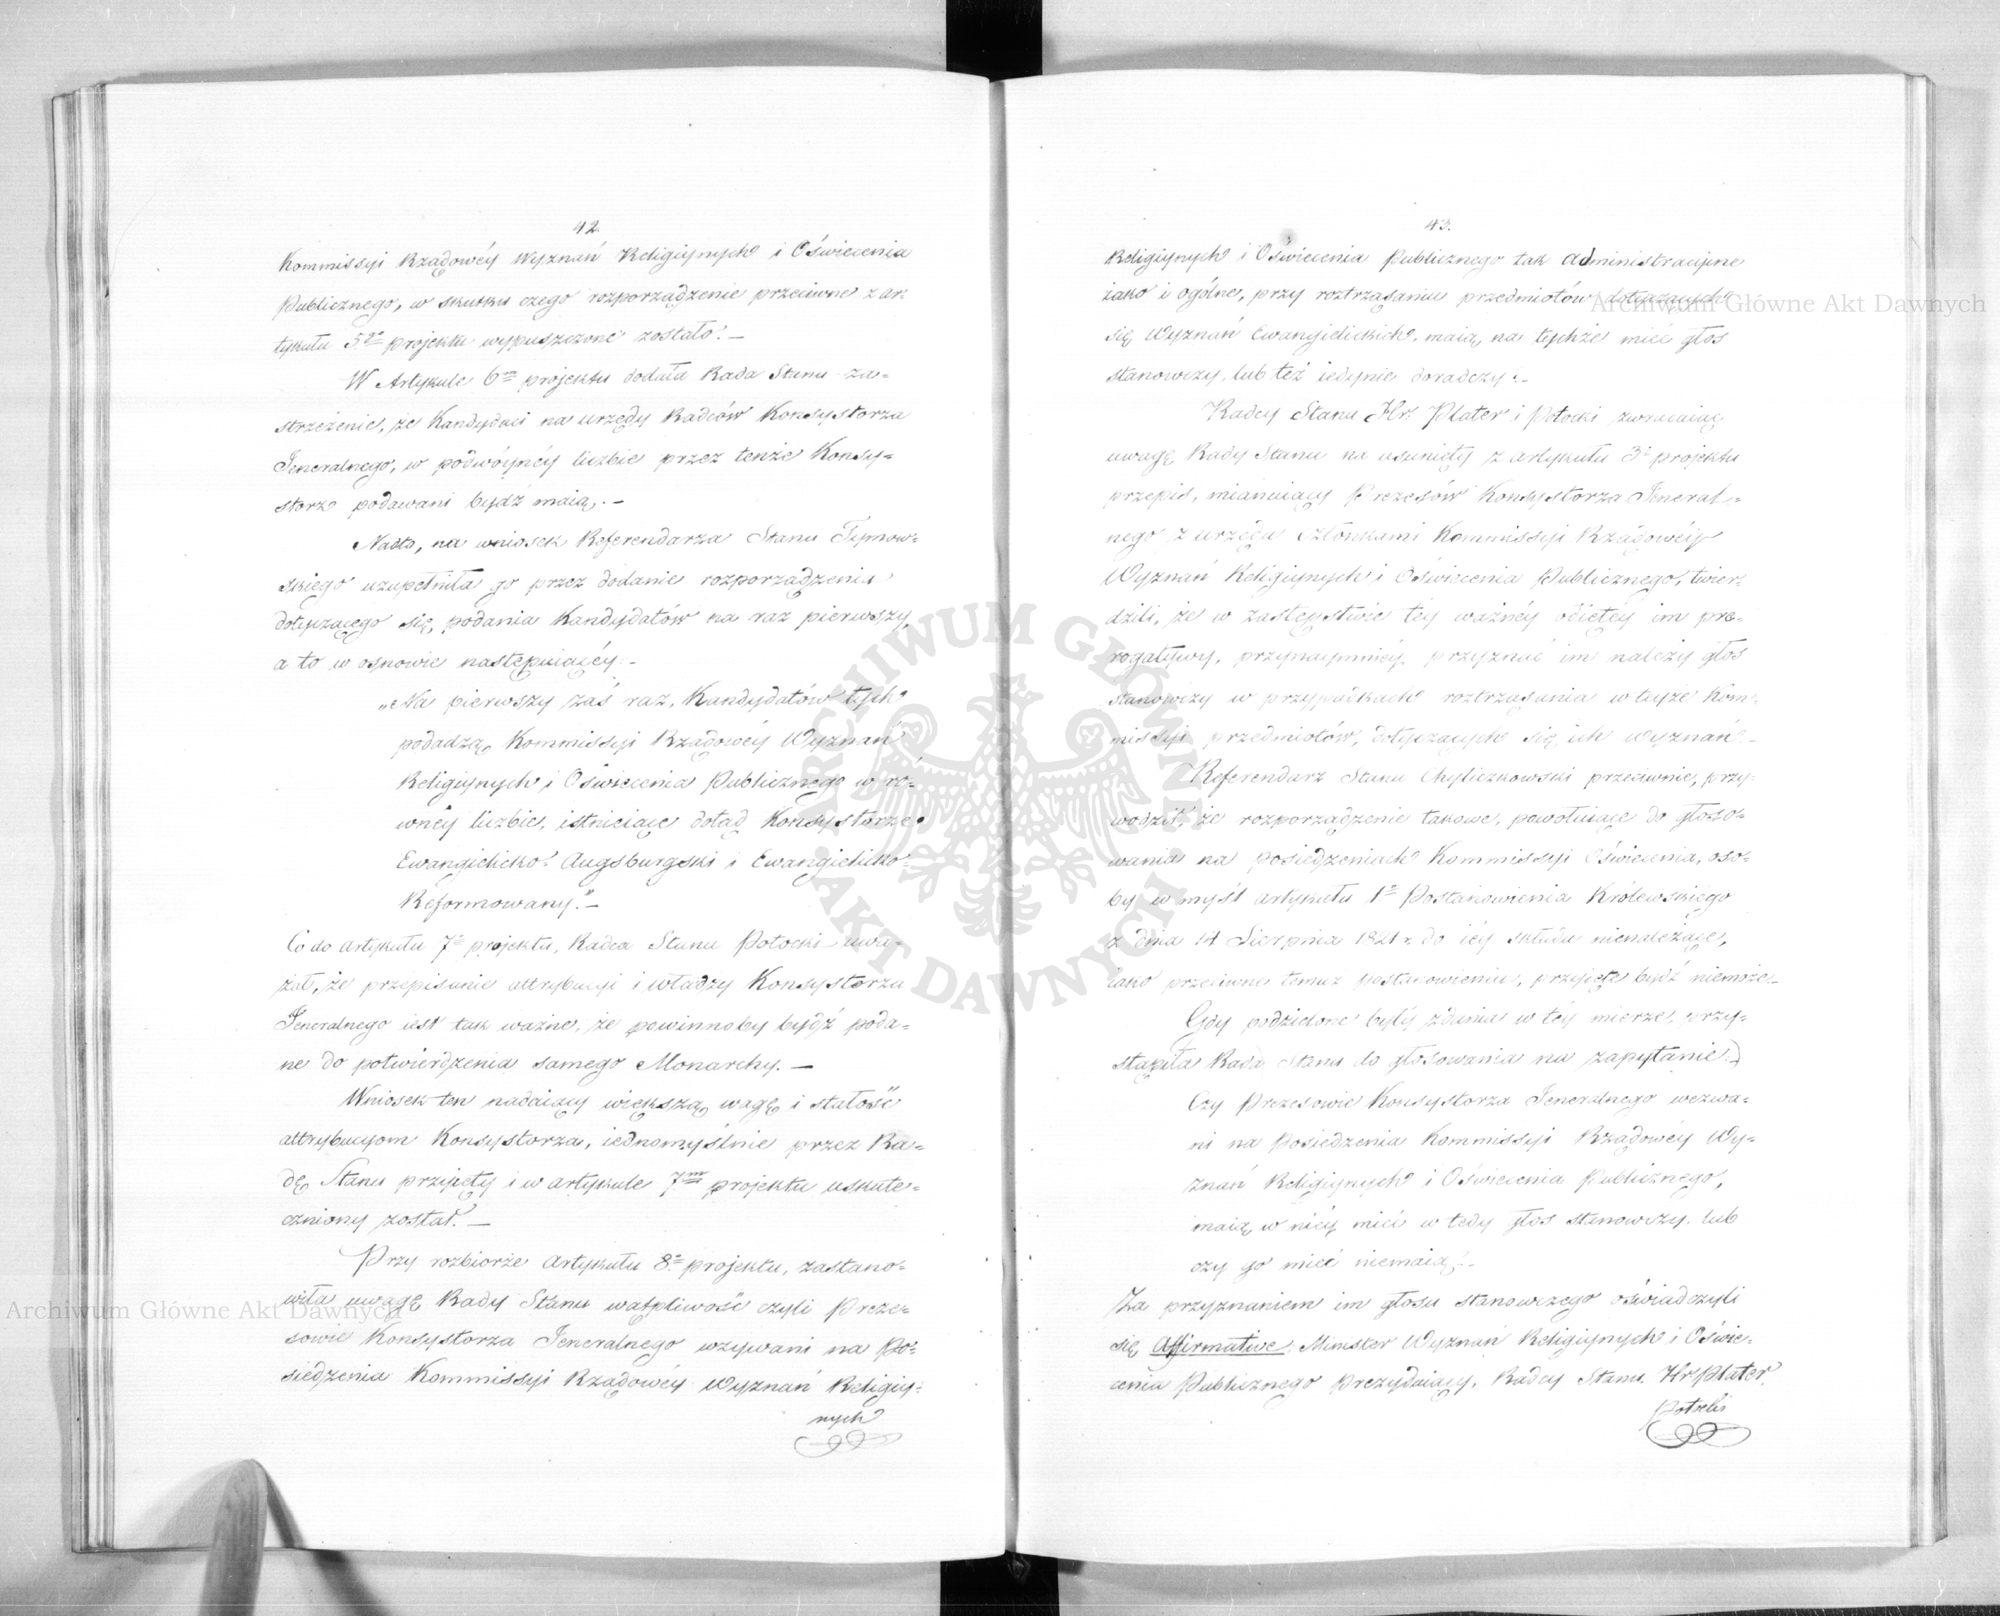 42.
Kommissyi Rządowéy Wyznań Religiynych i Oświecenia
Publicznego, w skutku czego rozporządzenie przeciwne z ar-
tykułu 5go projektu wypuszczone zostało. —
W Artykule 6m projektu dodała Rada Stanu za-
strzeżenie, że Kandydaci na urzędy Radców Konsystorza
Jeneralnego, w podwóynéy liczbie przez tenże Konsy-
storz podawani bydź maią. —
Nadto, na wniosek Referendarza Stanu Tymow-
skiego uzupełniła go przez dodanie rozporządzenia
dotyczącego się podania Kandydatów na raz pierwszy,
a to w osnowie następuiącéy: —
„Na pierwszy zaś raz, Kandydatów tych
podadzą Kommissyi Rządowéy Wyznań
Religiynych i Oświecenia Publicznego w ró-
wnéy liczbie, istnieiące dotąd Konsystorze
Ewangielicko-Augsburgski i Ewangielicko-
Reformowany.” —
Co do artykułu 7o projektu, Radca Stanu Potocki uwa-
żał, że przepisanie attrybucyi i władzy Konsystorza
Jeneralnego iest tak ważne, że powinnoby bydź poda-
ne do potwierdzenia samego Monarchy. —
Wniosek ten nadaiący większą wagę i stałość
attrybucyom Konsystorza, iednomyślnie przez Ra-
dę Stanu przyięty i w artykule 7m projektu uskute-
czniony został. —
Przy rozbiorze Artykułu 8o projektu, zastano-
wiła uwagę Rady Stanu wątpliwość czyli Preze-
sowie Konsystorza Jeneralnego wzywani na Po-
siedzenia Kommissyi Rządowéy Wyznań Religiy-
nych
43.
Religiynych i Oświecenia Publicznego tak administracyine
iako i ogólne, przy roztrząsaniu przedmiotów dotyczących
się Wyznań Ewangielickich, maią na tychże mieć głos
stanowczy, lub też iedynie doradczy. —
Radcy Stanu Hr. Plater i Potocki zwracaiąc
uwagę Rady Stanu na usunięty z artykułu 3o projektu
przepis, mianuiący Prezesów Konsystorza Jeneral-
nego z urzędu członkami Kommissyi Rządowéy
Wyznań Religiynych i Oświecenia Publicznego, twier-
dzili, że w zastępstwie téy ważnéy odiętéy im pre-
rogatywy, przynaymniéy przyznać im należy głos
stanowczy w przypadkach roztrząsania w teyże Kom-
missyi przedmiotów, dotyczących się ich wyznań. —
Referendarz Stanu Chyliczkowski przeciwnie, przy-
wodził, że rozporządzenie takowe, powołuiące do głoso-
wania na posiedzeniach Kommissyi Oświecenia, oso-
by w myśl artykułu 1o Postanowienia Królewskiego
z dnia 14 Sierpnia 1821 r. do iéy składu nienależące,
iako przeciwne temuż postanowieniu, przyięte bydź niemoże. —
Gdy podzielone były zdania w téy mierze, przy-
stąpiła Rada Stanu do głosowania na zapytanie:
Czy Prezesowie Konsystorza Jeneralnego wezwa-
ni na Posiedzenia Kommissyi Rządowéy Wy-
znań Religiynych i Oświecenia Publicznego,
maią w niéy mieć w tedy głos stanowczy, lub
czy go mieć niemaią? —
Za przyznaniem im głosu stanowczego oświadczyli
się Affirmative, Minister Wyznań Religiynych i Oświe-
cenia Publicznego Prezyduiący, Radcy Stanu Hr. Plater,
Archiwum Główne Akt Dawnych
Archiwum Główne Akt Dawnych
ARCHIWUM GŁÓWNE AKT DAWNYCH